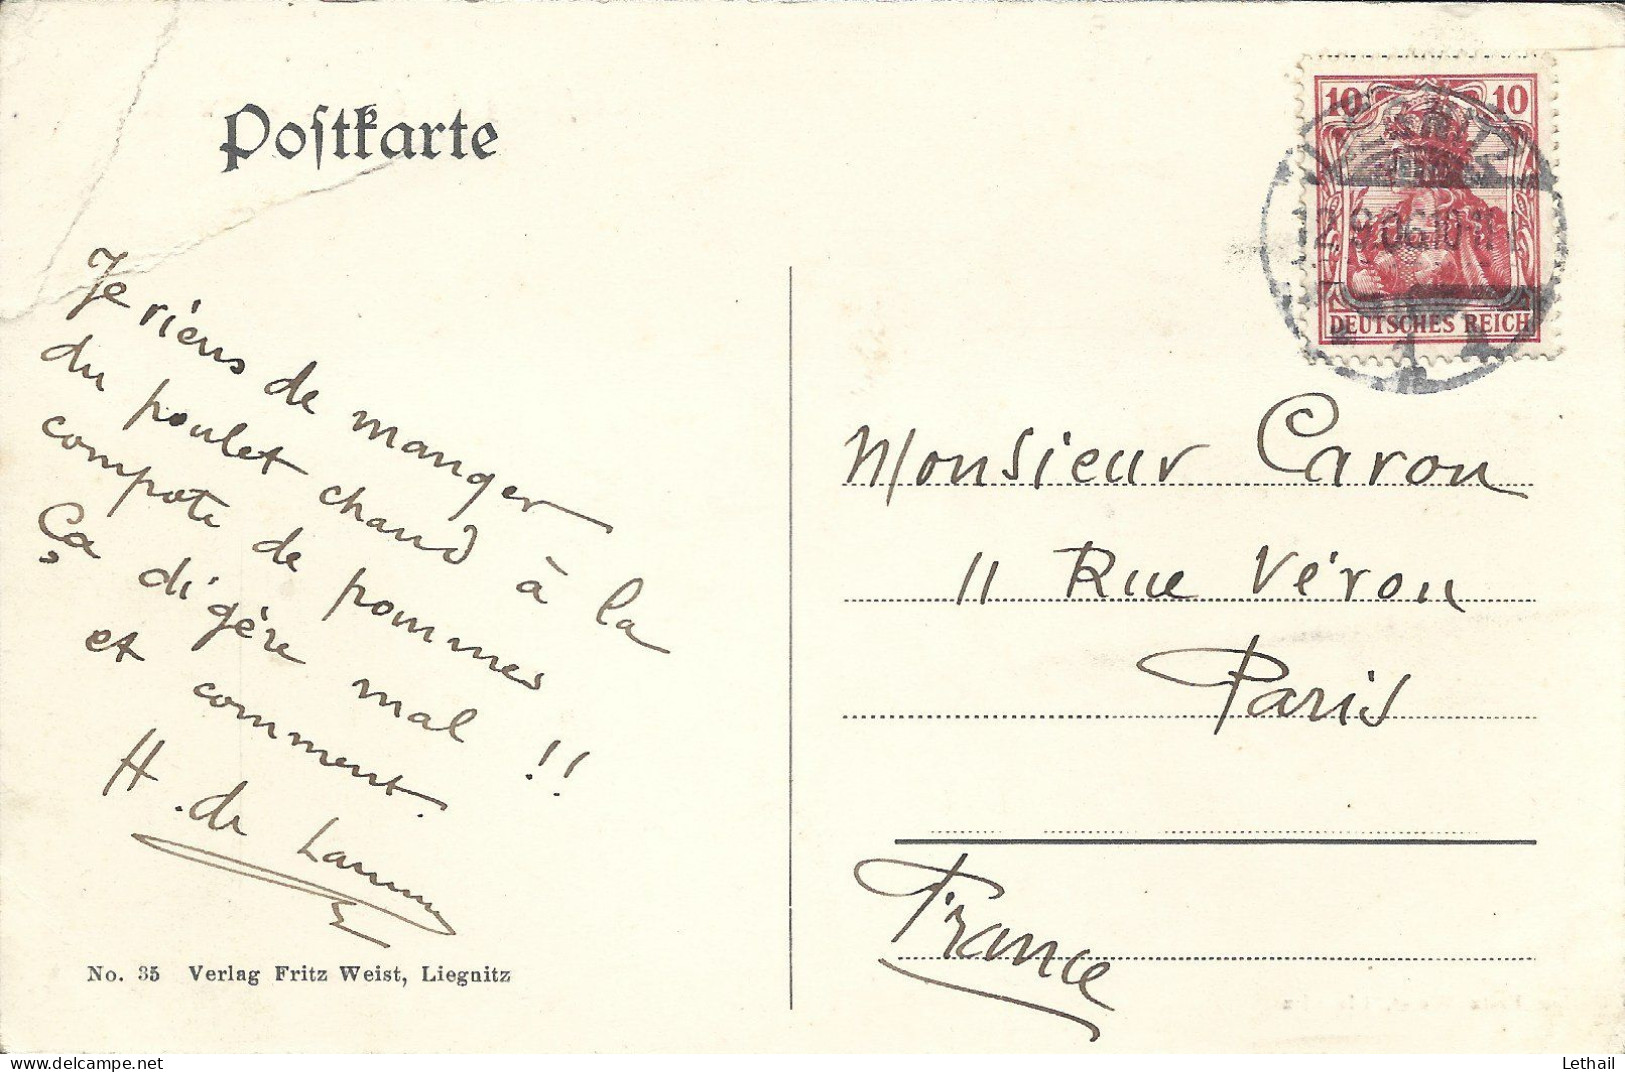 Postkarte
10 10
LIEGNITZ
12.9.06.10-11
1
DEUTSCHES REICH
Je viens de manger
du poulet chaud à la
compote de pommes
Ça digère mal !!
et comment.
H. de
Monsieur Caron
11 Rue Véron
Paris
France
No. 35 Verlag Fritz Weist, Liegnitz
Lethail